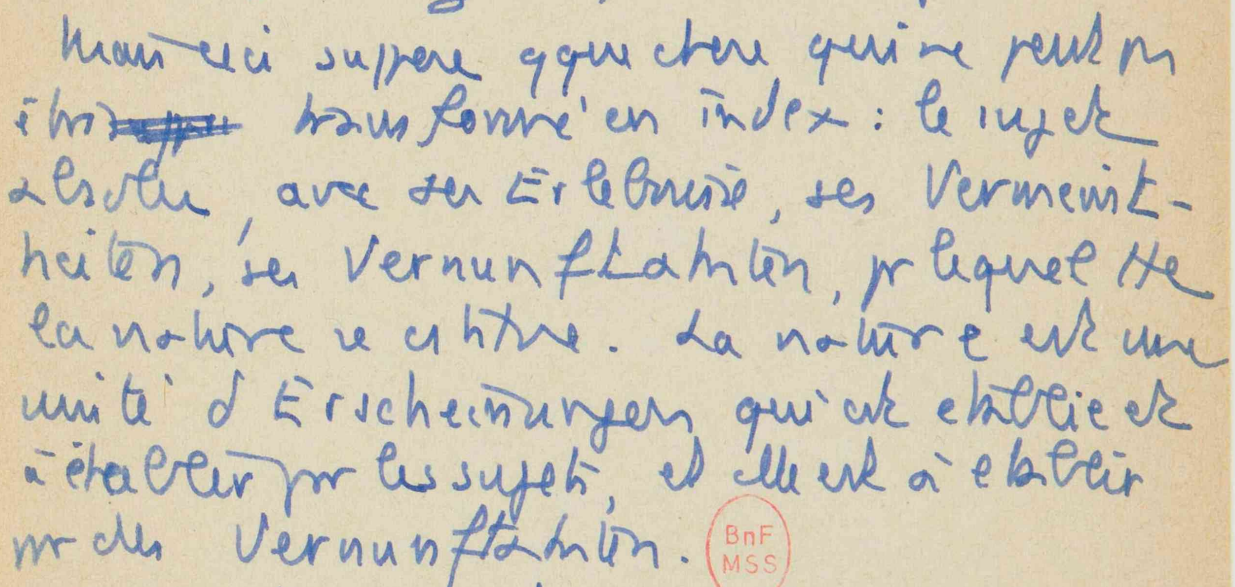 Mais ceci suppose qque chose qui ne peut pas
être transformé en index : le sujet
absolu, avec ses Erlebnisse, ses Vermeint-
heiten, ses Vernunftakten, pr lequel tte
la nature se cstitue. La nature est une
unité d'Erscheinungen qui est etablie et
à établir par les sujets, et elle est à etablir
par des Vernunftakten.
BnF
MSS